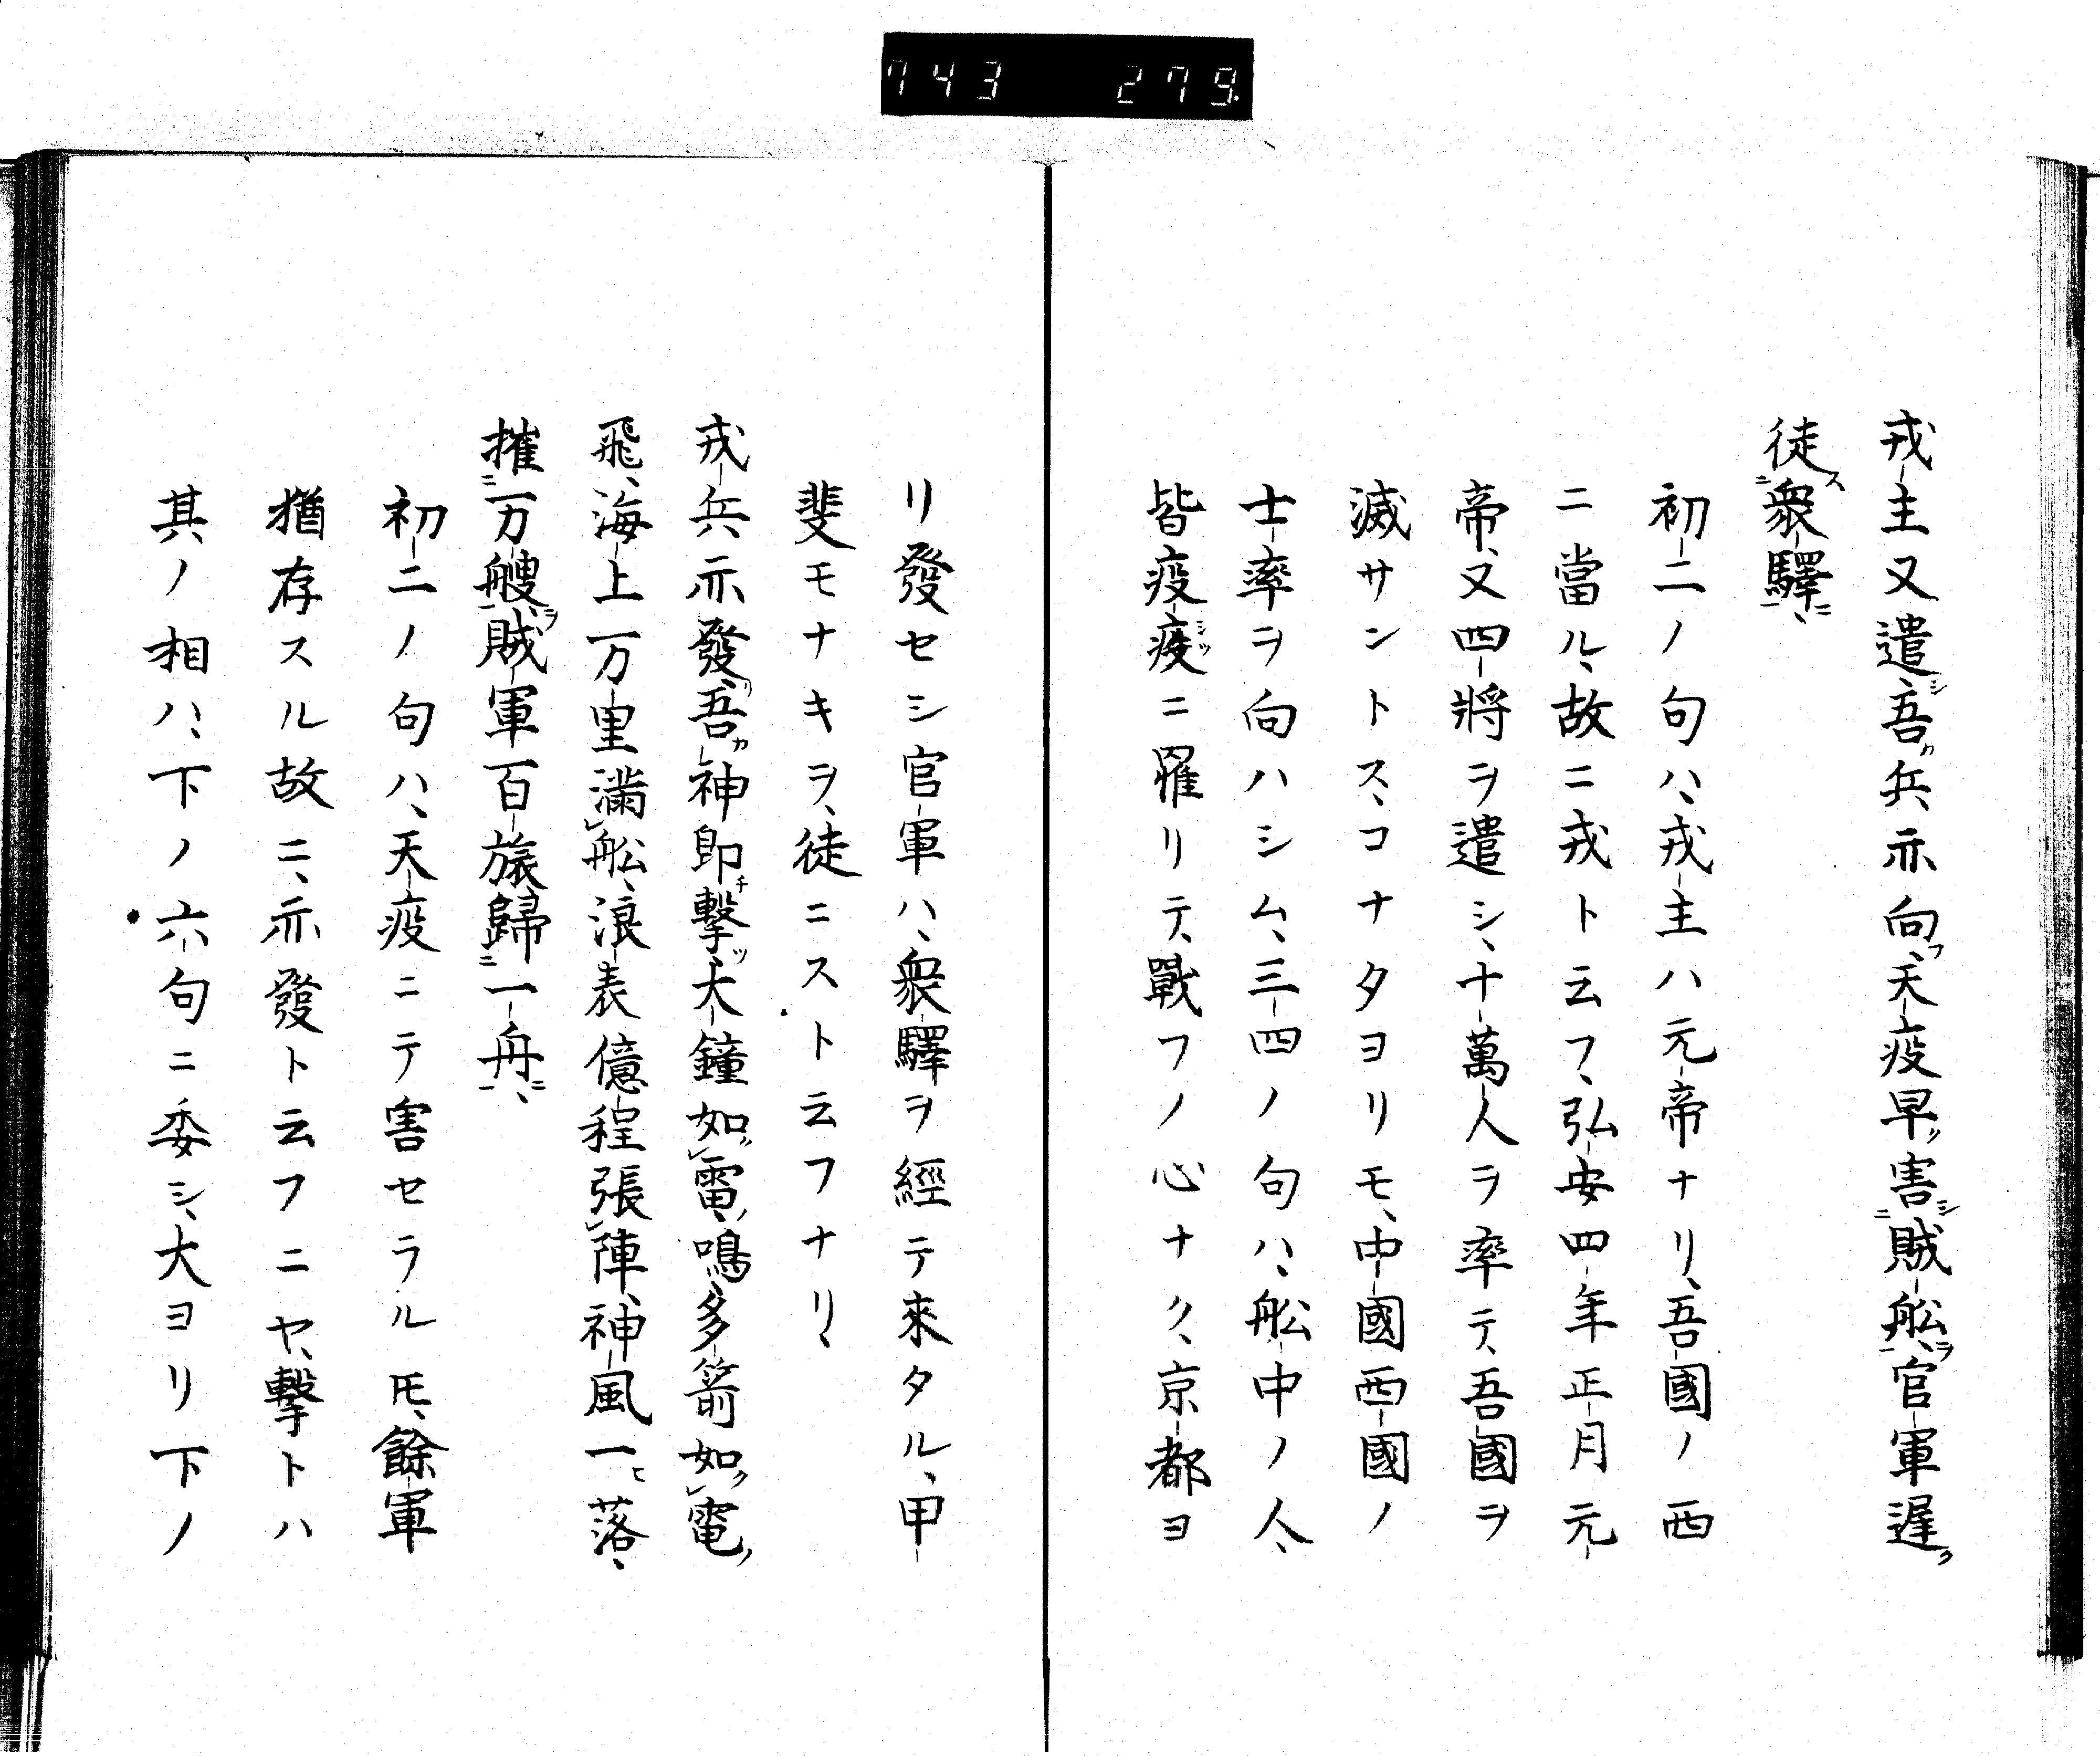 743 279.
戎主又遣吾兵、示向、天疫早害賊舩、官軍遅
徒衆驛、
初二ノ句ハ、戎主ハ元帝ナリ、吾國ノ西
ニ當ル、故ニ戎ト云フ、弘安四年正月元
帝、又四將ヲ遣シ、十萬人ヲ率テ、吾國ヲ
滅サントス、コナタヨリモ、中國西國ノ
士率ヲ向ハシム、三四ノ句ハ、舩中ノ人、
皆疫疫ニ罹リテ、戰フノ心ナク、京都ヨ
リ發セシ官軍ハ、衆驛ヲ經テ來タル、甲
斐モナキヲ、徒ニストト云フナリ、
戎兵、示發、吾神即撃、大鐘如雷鳴、多箭如電
飛、海上万里滿舩、浪表億程張陣、神風一落、
摧万艘、賊軍百旅歸一舟、
初二ノ句ハ、天疫ニテ害セラルㇳモ、餘軍
猶存スル故ニ、示發ト云フニヤ、撃トハ
其ノ相ハ、下ノ六句ニ委シ、大ヨリ下ノ